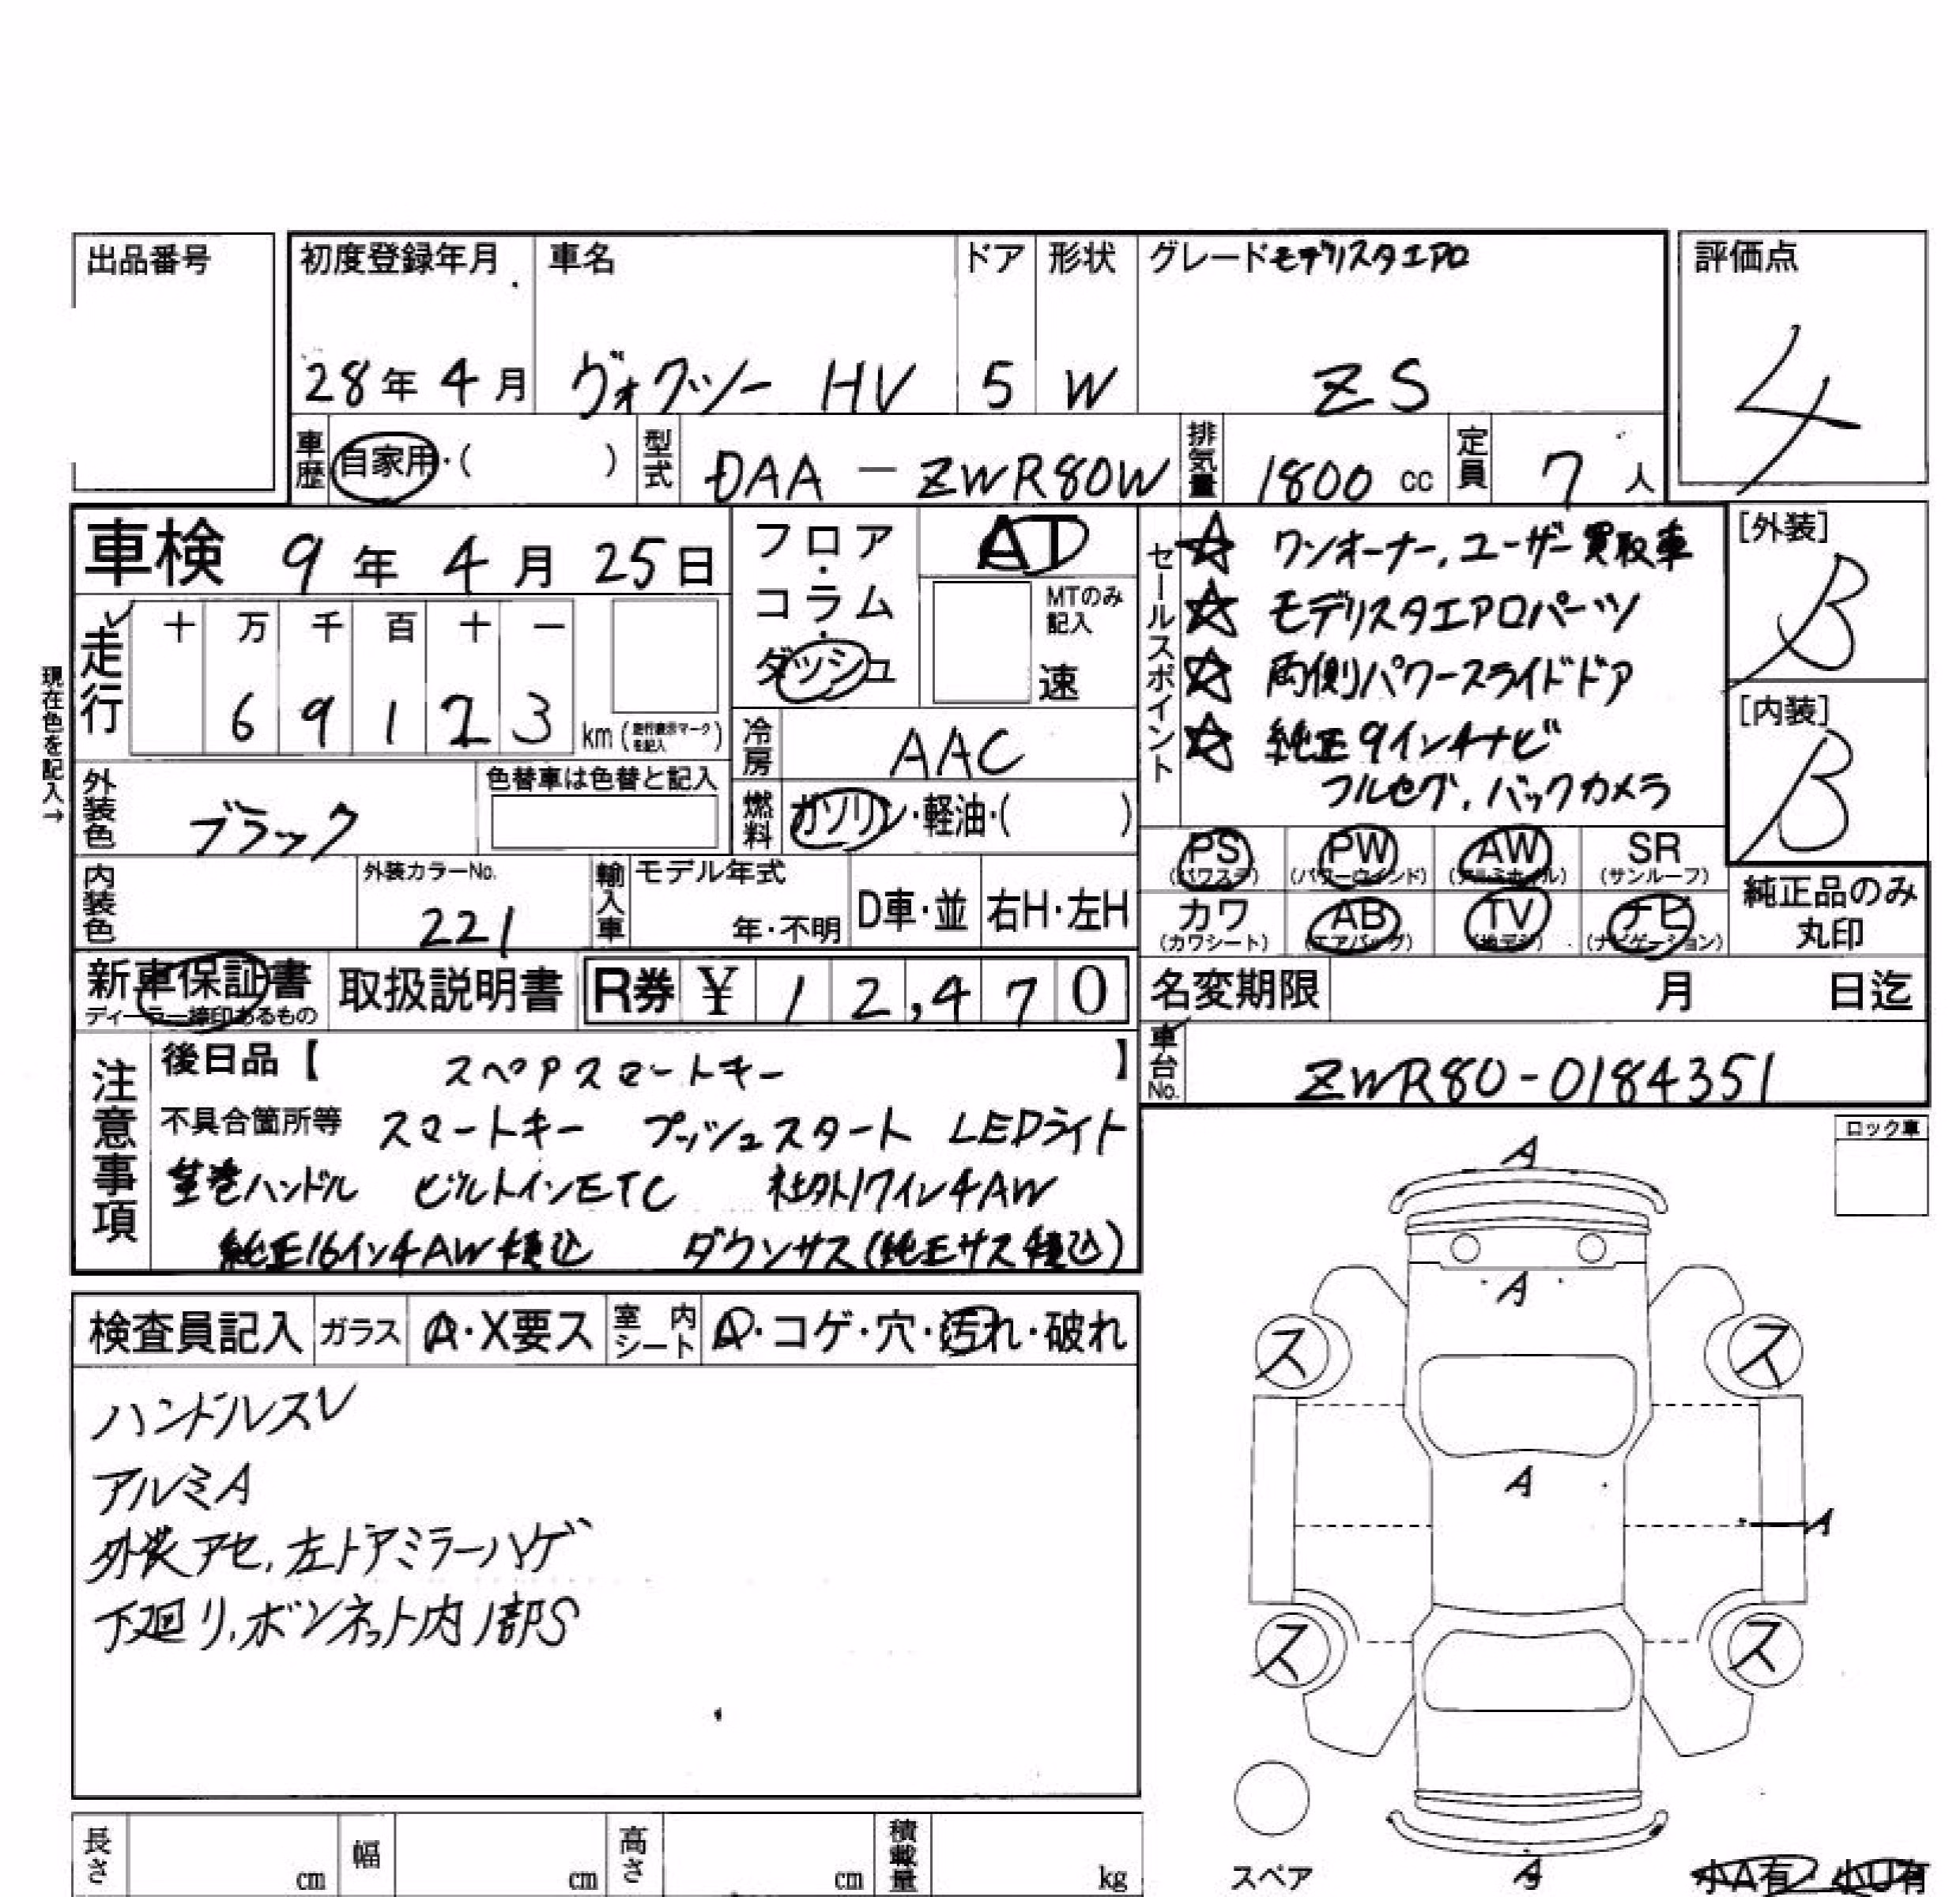 出品番号
初度登録年月 車名 ドア 形状 グレード モデリスタエアロ 評価点
28年4月 ヴォクシー HV 5 W ZS 4
車歴 自家用・( ) 型式 DAA-ZWR80W 排気量 1800 cc 定員 7人
車検 9年4月25日
フロア・コラム・ダッシュ
AT
MTのみ記入
速
セールスポイント
☆ ワンオーナー,ユーザー買取車
☆ モデリスタエアロパーツ
☆ 両側パワースライドドア
☆ 純正9インチナビ
フルセグ,バックカメラ
[外装] B
[内装] B
現在色を記入→
走行 十 万 千 百 十 一
6 9 1 2 3 km (走行表示マークを記入)
冷房 AAC
外装色 ブラック 色替車は色替と記入
燃料 ガソリン・軽油・( )
PS (パワステ) PW (パワーウインド) AW (アルミホイル) SR (サンルーフ)
カワ (カワシート) AB (エアバッグ) TV (地デジ) ナビ (ナビゲーション)
純正品のみ
丸印
内装色 外装カラーNo. 221 輸入車 モデル年式 年・不明 D車・並 右H・左H
新車保証書 取扱説明書 R券 ¥12,470
ディーラー捺印あるもの
名変期限 月 日迄
車台No. ZWR80-0184351
注意事項
後日品【 スペアスマートキー 】
不具合箇所等 スマートキー プッシュスタート LEDライト
革巻ハンドル ビルトインETC 社外17インチAW
純正16インチAW積込 ダウンサス(純正サス積込)
ロック車
検査員記入 ガラス A・X要ス 室内シート A・コゲ・穴・汚れ・破れ
ハンドルスレ
アルミA
外装アセ,左ドアミラーハゲ
下廻り,ボンネット内1部S
A
A
ス ス
A
A
ス ス
A
スペア
小A有 小U有
長さ cm 幅 cm 高さ cm 積載量 kg